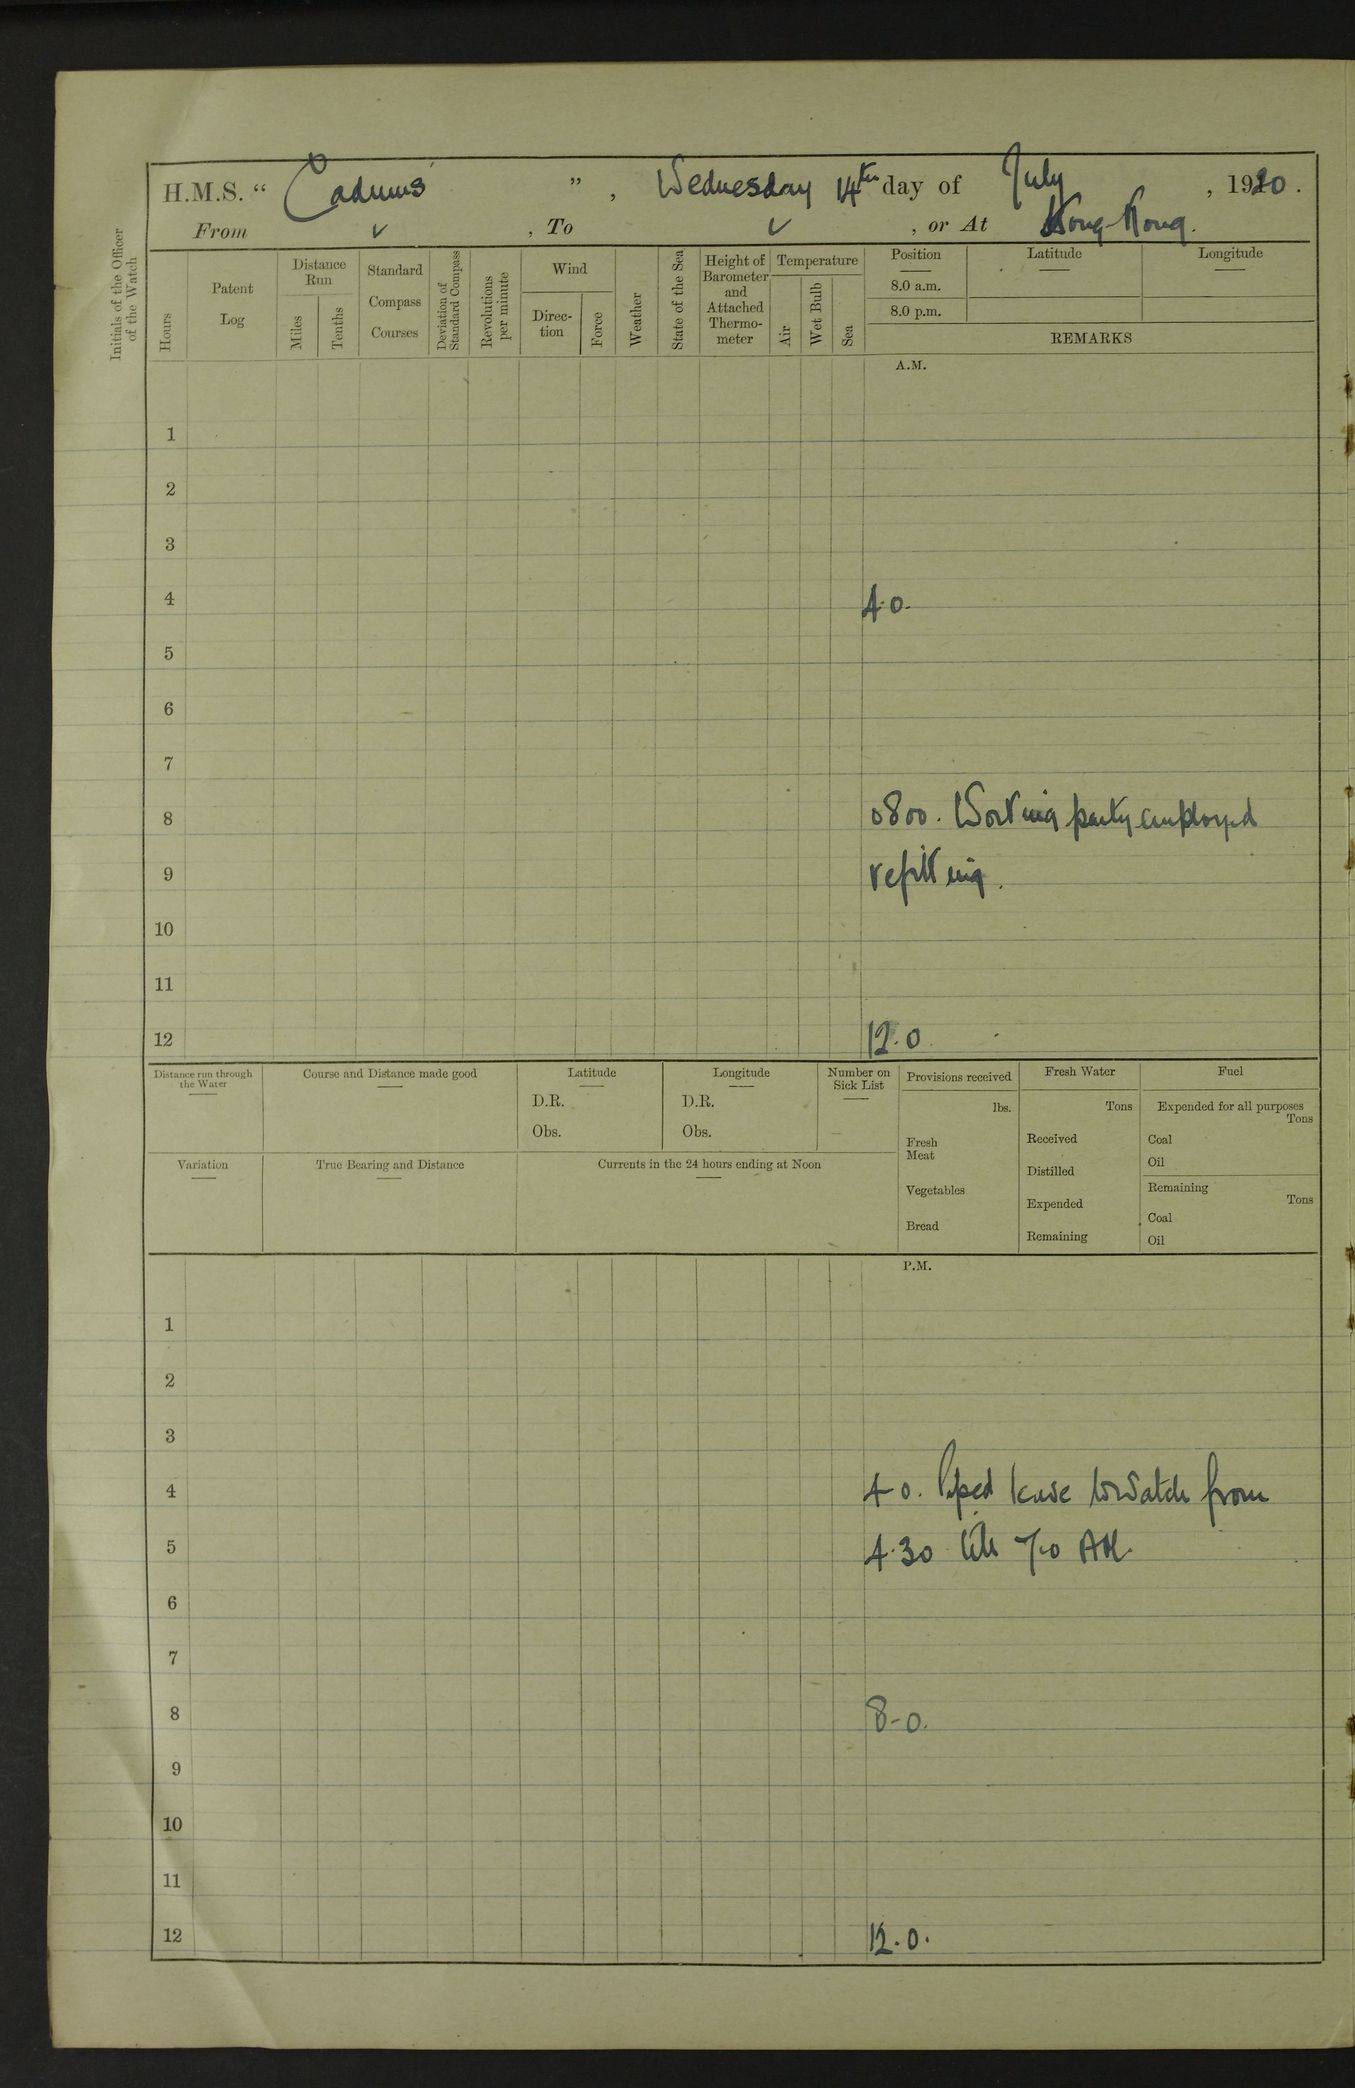 H.M.S. “ Cadmus ” , Wednesday 14th day of July , 1920 .
From ✓ , To ✓ , or At Hong Kong.
Initials of the Officer
of the Watch
Hours
Patent
Log
Distance
Run
Miles
Tenths
Standard
Compass
Courses
Deviation of
Standard Compass
Revolutions
per minute
Wind
Direc-
tion
Force
Weather
State of the Sea
Height of
Barometer
and
Attached
Thermo-
meter
Temperature
Air
Wet Bulb
Sea
Position
8.0 a.m.
8.0 p.m.
Latitude
Longitude
REMARKS
A.M.
1
2
3
4 4.0.
5
6
7
8 0800. Working party employed
9 refitting.
10
11
12 12.0
Distance run through
the Water
Course and Distance made good
Latitude
D.R.
Obs.
Longitude
D.R.
Obs.
Number on
Sick List
Provisions received
lbs.
Fresh
Meat
Vegetables
Bread
Fresh Water
Tons
Received
Distilled
Expended
Remaining
Fuel
Expended for all purposes
Tons
Coal
Oil
Remaining
Tons
Coal
Oil
Variation
True Bearing and Distance
Currents in the 24 hours ending at Noon
P.M.
1
2
3
4 4.0. Piped leave to watch from
5 4.30 till 7.0 AM.
6
7
8 8-0.
9
10
11
12 12.0.